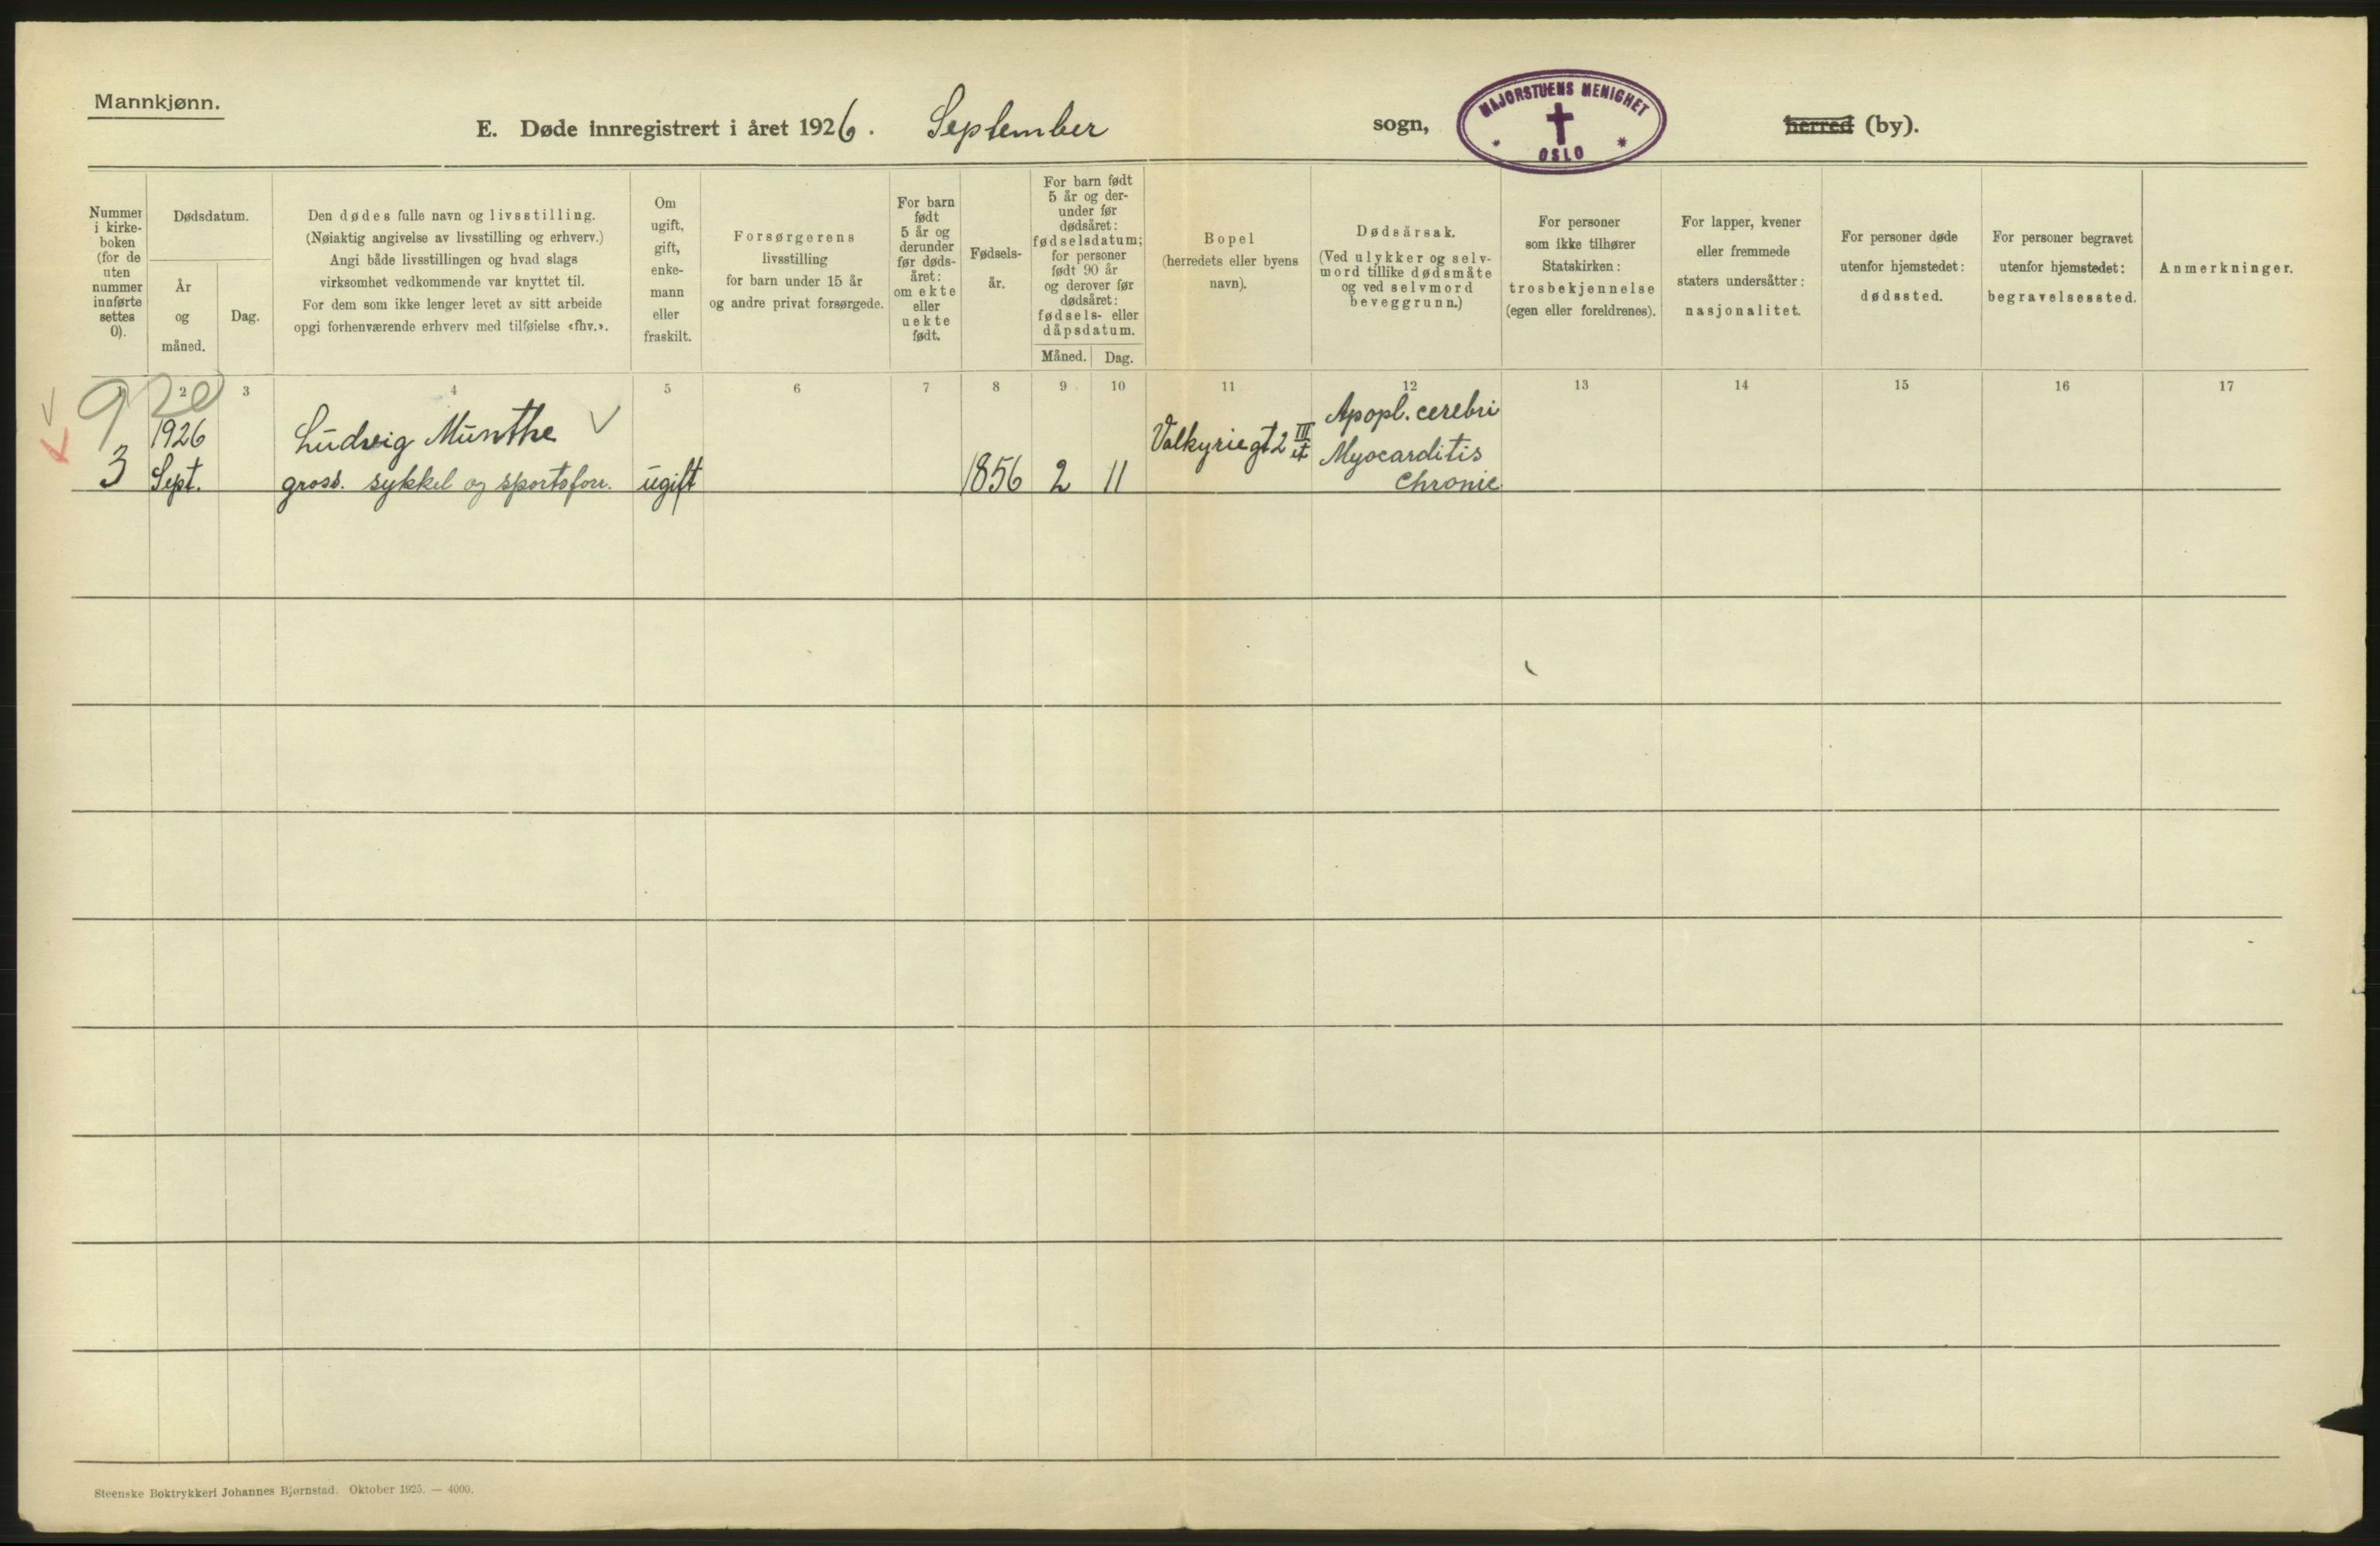 Mannkjønn.
E. Døde innregistrert i året 1926. September sogn, MAJORSTUENS MENIGHET * OSLO * herred (by).
Nummer
i kirke-
boken
(for de
uten
nummer
innførte
settes
0).
Dødsdatum.
År
og
måned.
Dag.
Den dødes fulle navn og livsstilling.
(Nøiaktig angivelse av livsstilling og erhverv.)
Angi både livsstillingen og hvad slags
virksomhet vedkommende var knyttet til.
For dem som ikke lenger levet av sitt arbeide
opgi forhenværende erhverv med tilføielse «fhv.».
Om
ugift,
gift,
enke-
mann
eller
fraskilt.
Forsørgerens
livsstilling
for barn under 15 år
og andre privat forsørgede.
For barn
født
5 år og
derunder
før døds-
året:
om ekte
eller
uekte
født.
Fødsels-
år.
For barn født
5 år og der-
under før
dødsåret:
fødselsdatum;
for personer
født 90 år
og derover før
dødsåret:
fødsels- eller
dåpsdatum.
Måned. Dag.
Bopel
(herredets eller byens
navn).
Dødsårsak.
(Ved ulykker og selv-
mord tillike dødsmåte
og ved selvmord
beveggrunn.)
For personer
som ikke tilhører
Statskirken:
trosbekjennelse
(egen eller foreldrenes).
For lapper, kvener
eller fremmede
staters undersåtter:
nasjonalitet.
For personer døde
utenfor hjemstedet:
dødssted.
For personer begravet
utenfor hjemstedet:
begravelsessted.
Anmerkninger.
2 3 4 5 6 7 8 9 10 11 12 13 14 15 16 17
920
3
1926
Sept.
Ludvig Munthe
gross. sykkel og sportsforr.
ugift
1856 2 11
Valkyriegt 2 III et
Apopl. cerebri
Myocarditis
Chronic
Steenske Boktrykkeri Johannes Bjørnstad. Oktober 1925. — 4000.